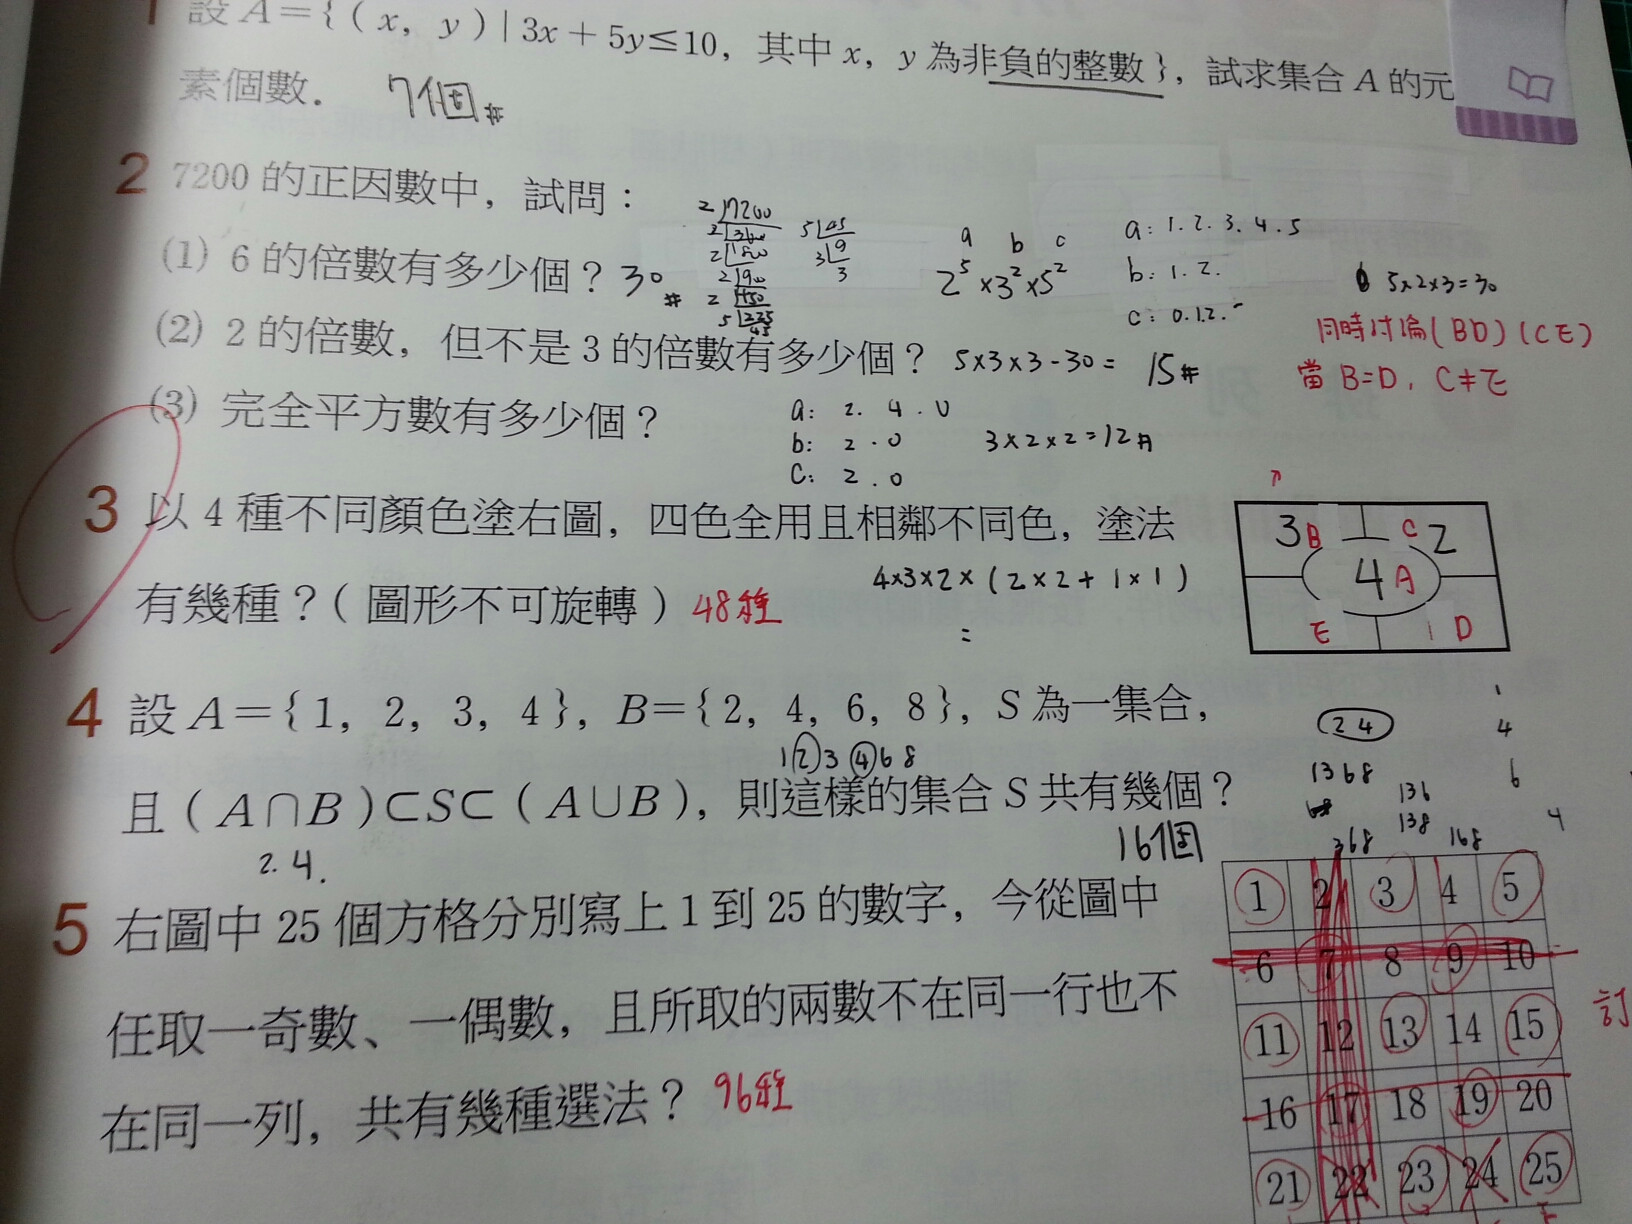 1 設 A={(x, y)|3x+5y≤10, 其中 x, y 為非負的整數}, 試求集合 A 的元
素個數. 7個#
2 7200 的正因數中, 試問:
(1) 6 的倍數有多少個? 30#
2⁵×3²×5²
a b c
a: 1.2.3.4.5
b: 1.2.
c: 0.1.2.
5×2×3=30
(2) 2 的倍數, 但不是 3 的倍數有多少個? 5×3×3-30= 15#
同時討論(BD)(CE)
當 B=D, C≠E
(3) 完全平方數有多少個?
a: 2.4.0
b: 2.0
c: 2.0
3×2×2=12
3 以 4 種不同顏色塗右圖, 四色全用且相鄰不同色, 塗法
有幾種?(圖形不可旋轉) 48種
4×3×2×(2×2+1×1)
=
3 B C 2
4 A
E 1 D
4 設 A={1, 2, 3, 4}, B={2, 4, 6, 8}, S 為一集合,
1 2 3 4 6 8
且 (A∩B)⊂S⊂(A∪B), 則這樣的集合 S 共有幾個?
2.4.
16個
2 4
1368
136
138
368
168
1
4
6
4
5 右圖中 25 個方格分別寫上 1 到 25 的數字, 今從圖中
任取一奇數、一偶數, 且所取的兩數不在同一行也不
在同一列, 共有幾種選法? 96種
1 2 3 4 5
6 7 8 9 10
11 12 13 14 15
16 17 18 19 20
21 22 23 24 25
訂